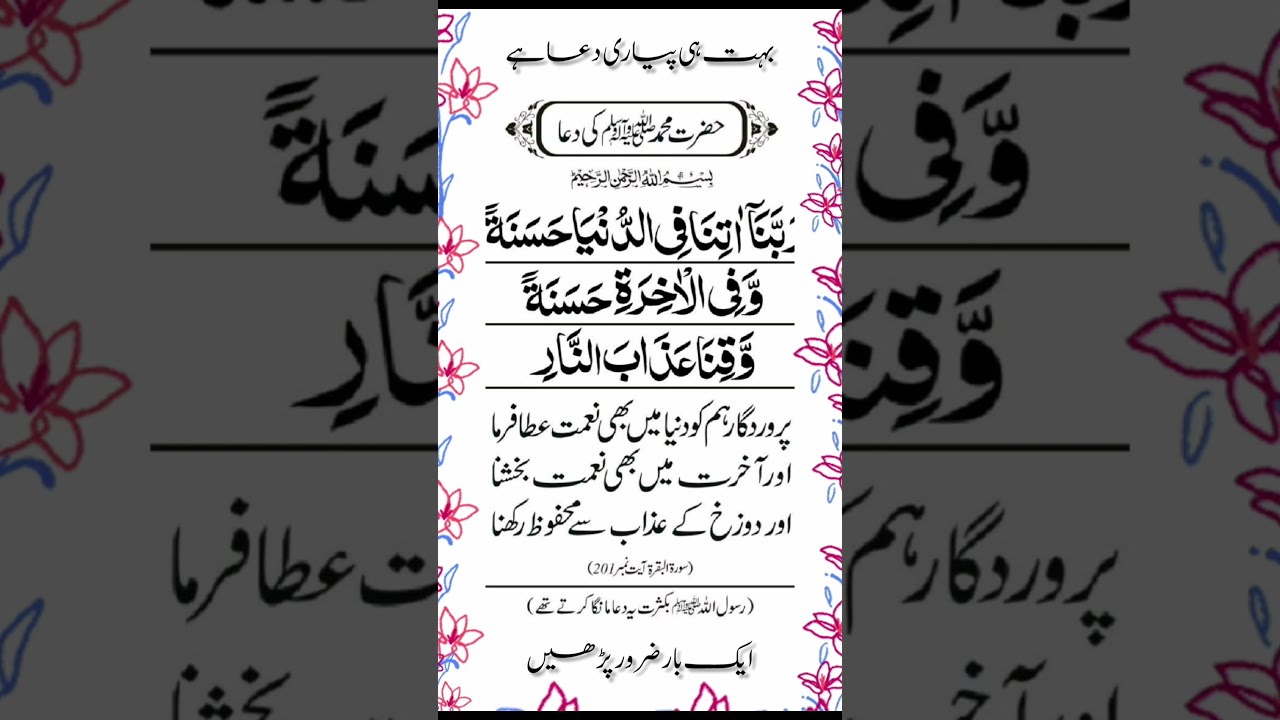 بہت ہی پیاری دعا ہے
حضرت محمد ﷺ کی دعا
بسم اللہ الرحمٰن الرحیم
رَبَّنَآ اٰتِنَا فِی الدُّنْیَا حَسَنَةً
وَّ فِی الْاٰخِرَةِ حَسَنَةً
وَّ قِنَا عَذَابَ النَّارِ
پروردگار ہم کو دنیا میں بھی نعمت عطا فرما
اور آخرت میں بھی نعمت بخشنا
اور دوزخ کے عذاب سے محفوظ رکھنا
(سورۃ البقرۃ آیت نمبر 201)
(رسول اللہ ﷺ بکثرت یہ دعا مانگا کرتے تھے)
ایک بار ضرور پڑھیں